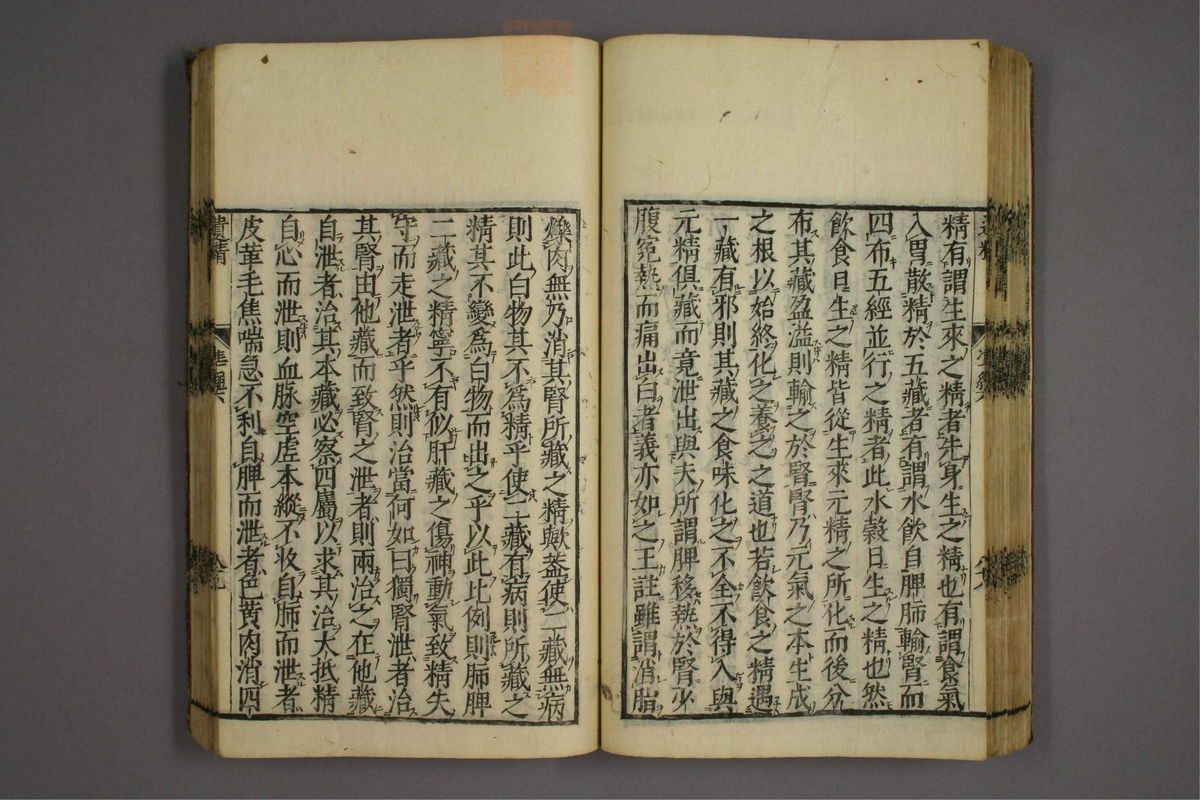 精有謂生來之精者先身生之精也有謂食氣
入胃散精於五藏者有謂水飲自脾肺輸腎而
四布五經並行之精者此水穀日生之精也然
飲食日生之精皆從生來元精之所化而後分
布其藏盈溢則輸之於腎腎乃元氣之本生成
之根以始終化之養之之道也若飲食之精遇
一藏有邪則其藏之食味化之不全不得入與
元精俱藏而竟泄出與夫所謂脾移熱於腎少
腹寃熱而痛出白者義亦如之王註雖謂消脂
爍肉無乃消其腎所藏之精歟蓋使二藏無病
則此白物其不為精乎使二藏有病則所藏之
精其不變為白物而出之乎以此比例則肺脾
二藏之精寧不有似肝藏之傷神動氣致精失
守而走泄者乎然則治當何如曰獨腎泄者治
其腎由他藏而致腎之泄者則兩治之在他藏
自泄者治其本藏必察四屬以求其治大抵精
自心而泄則血脉空虛本縱不收自肺而泄者
皮革毛焦喘急不利自脾而泄者色黃肉消四
遺精